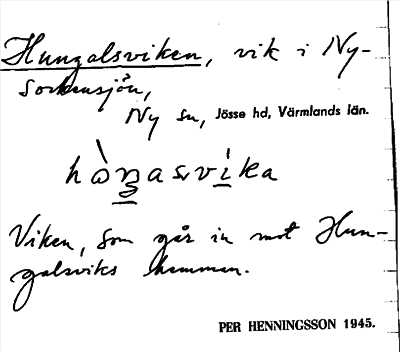 Hungalsviken, vik i Ny-
sockensjön,
Ny sn, Jösse hd, Värmlands län.
hònasvika
Viken, som går in mot Hun-
galsviks hemman.
PER HENNINGSSON 1945.